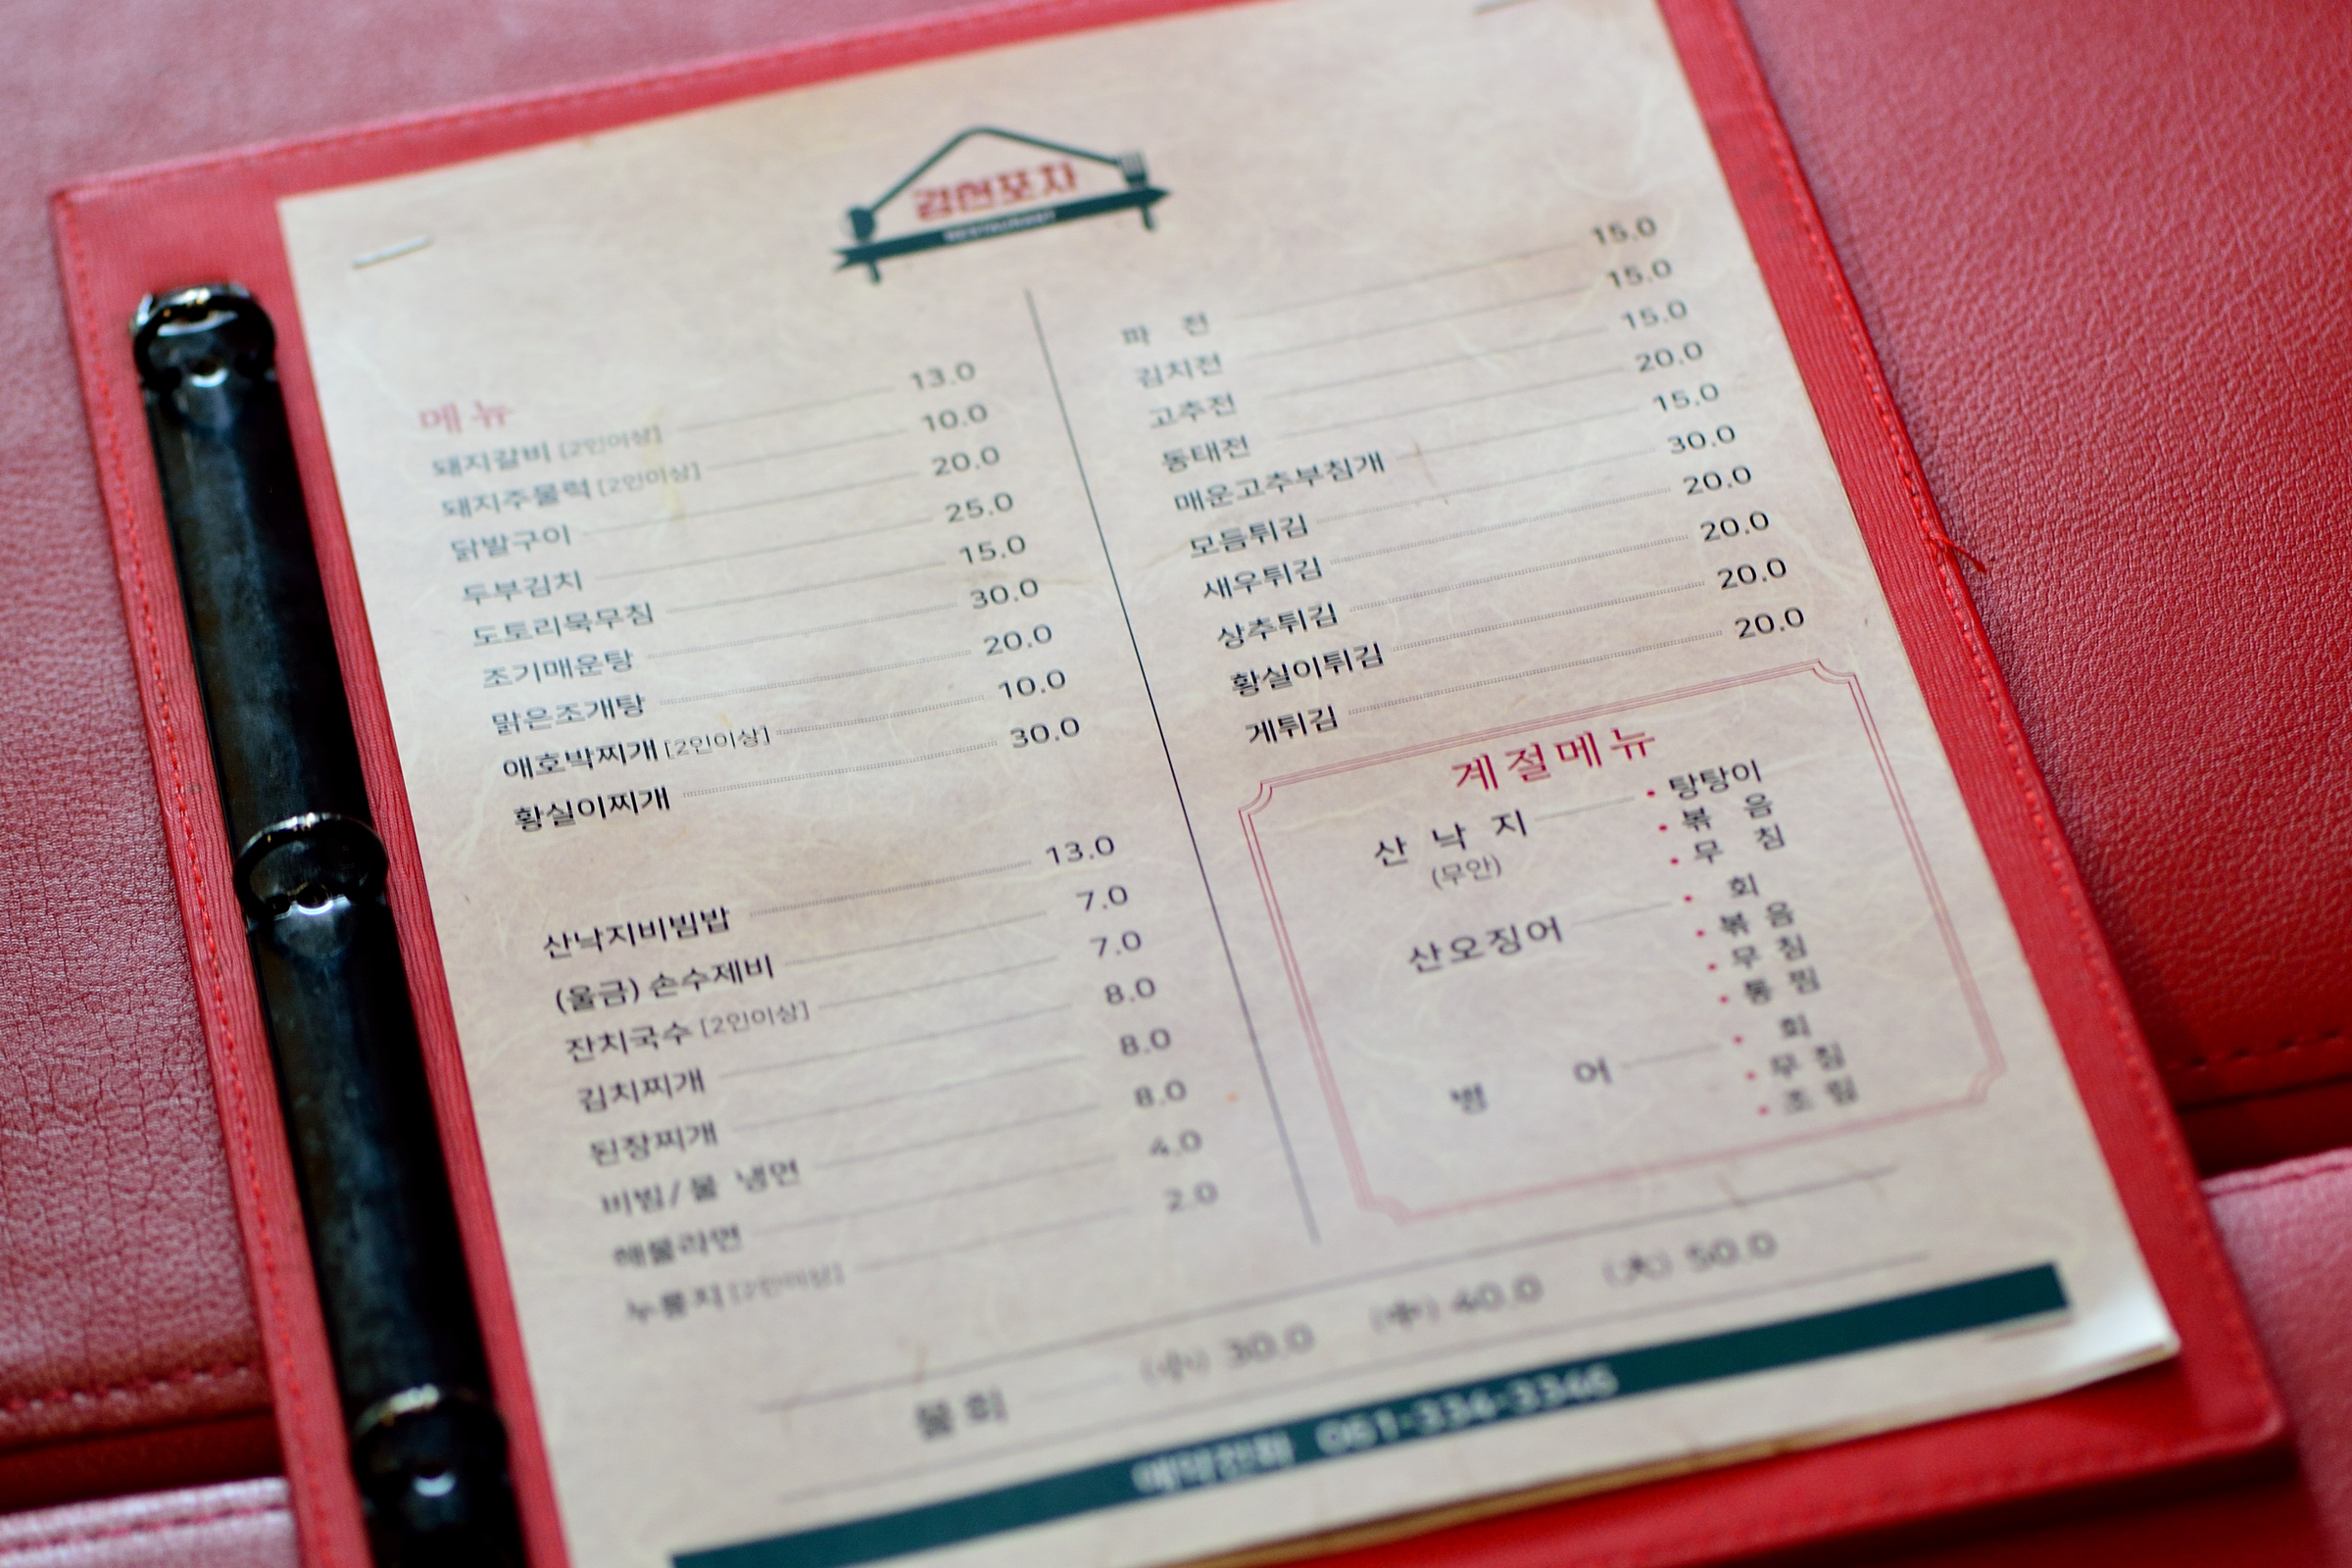 RESTAURANT
메뉴
돼지갈비 [2인이상] 13.0
돼지주물럭 [2인이상] 10.0
닭발구이 20.0
두부김치 25.0
도토리묵무침 15.0
조기매운탕 30.0
맑은조개탕 20.0
애호박찌개 [2인이상] 10.0
황실이찌개 30.0
산낙지비빔밥 13.0
(울금) 손수제비 7.0
잔치국수 [2인이상] 7.0
김치찌개 8.0
된장찌개 8.0
비빔/물 냉면 8.0
해물라면 4.0
누룽지 [2인이상] 2.0
파 전 15.0
김치전 15.0
고추전 15.0
동태전 20.0
매운고추부침개 15.0
모듬튀김 30.0
새우튀김 20.0
상추튀김 20.0
황실이튀김 20.0
게튀김 20.0
계절메뉴
산 낙 지 • 탕탕이
(무안) • 볶 음
• 무 침
산오징어 • 회
• 볶 음
• 무 침
• 통 찜
병 어 • 회
• 무 침
• 조 림
물회 (小) 30.0 (中) 40.0 (大) 50.0
예약전화 061-334-3346